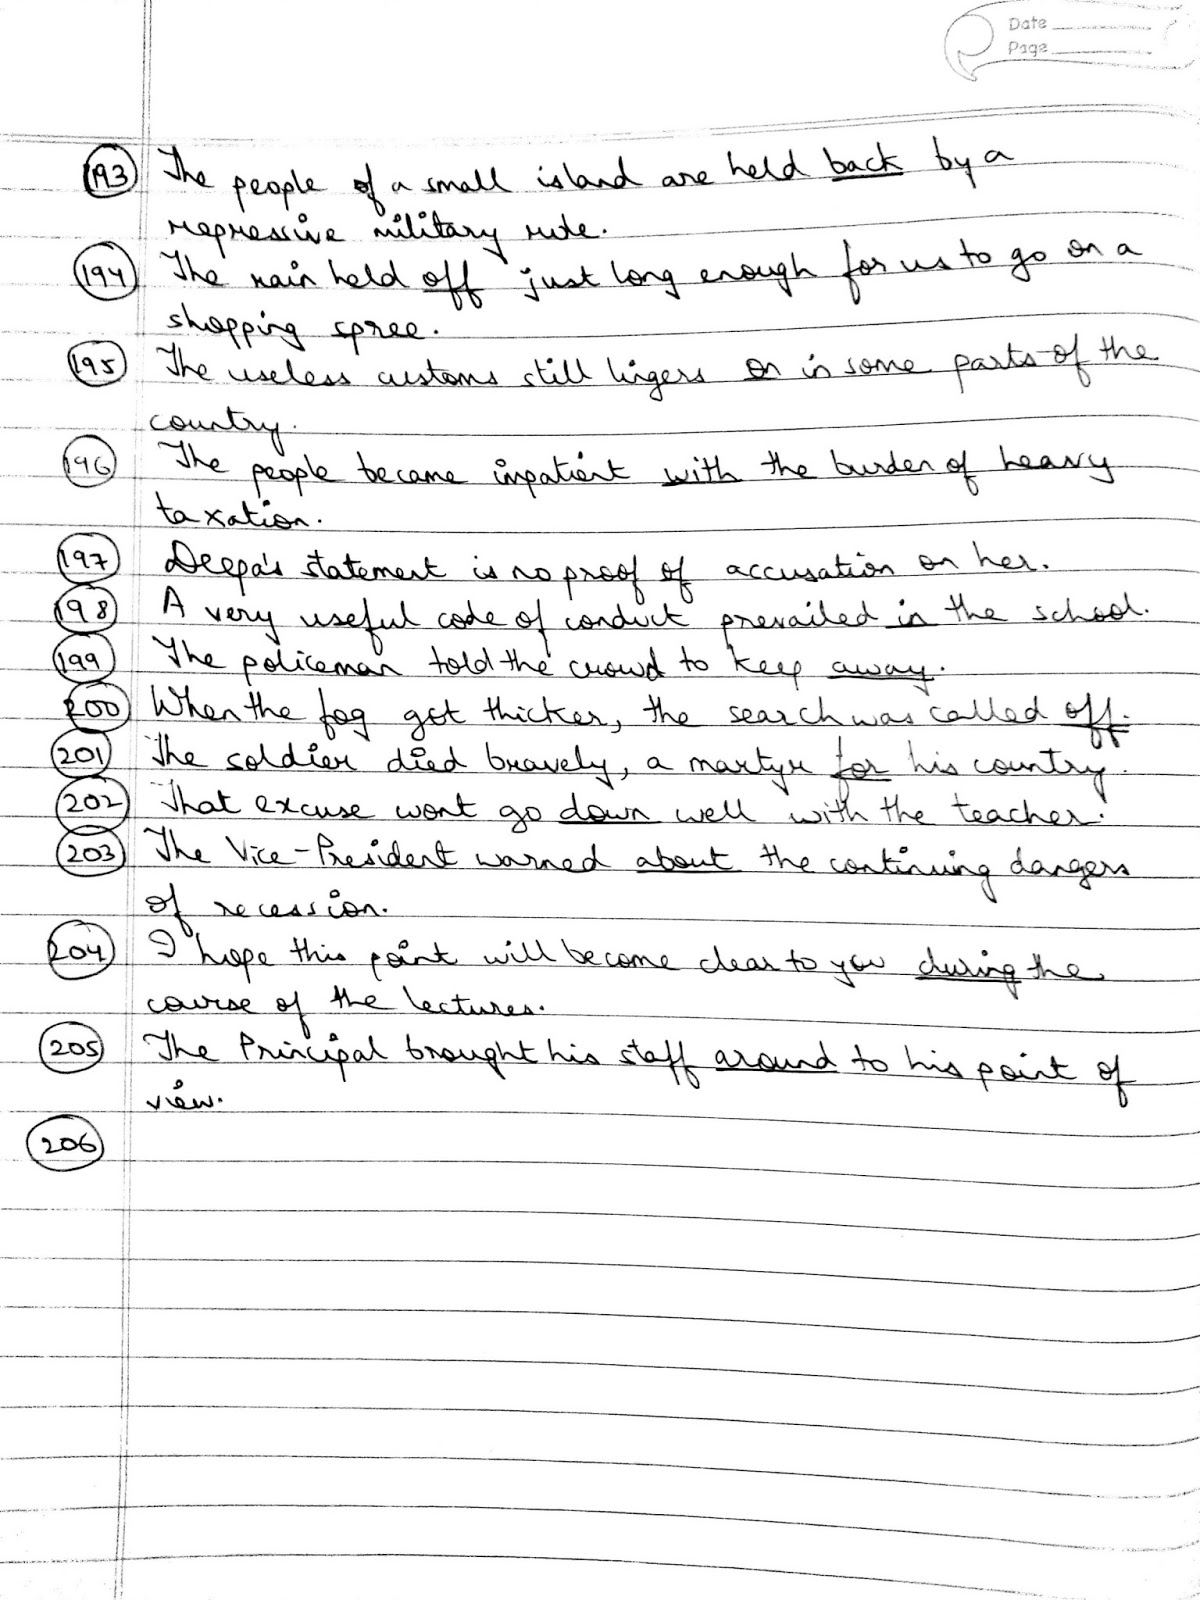 Date
Page
193 The people of a small island are held back by a
repressive military rule.
194 The rain held off just long enough for us to go on a
shopping spree.
195 The useless customs still lingers on in some parts of the
country.
196 The people became impatient with the burden of heavy
taxation.
197 Deepa's statement is no proof of accusation on her.
198 A very useful code of conduct prevailed in the school.
199 The policeman told the crowd to keep away.
200 When the fog got thicker, the search was called off.
201 The soldier died bravely, a martyr for his country.
202 That excuse wont go down well with the teacher.
203 The Vice-President warned about the continuing dangers
of recession.
204 I hope this point will become clear to you during the
course of the lectures.
205 The Principal brought his staff around to his point of
view.
206